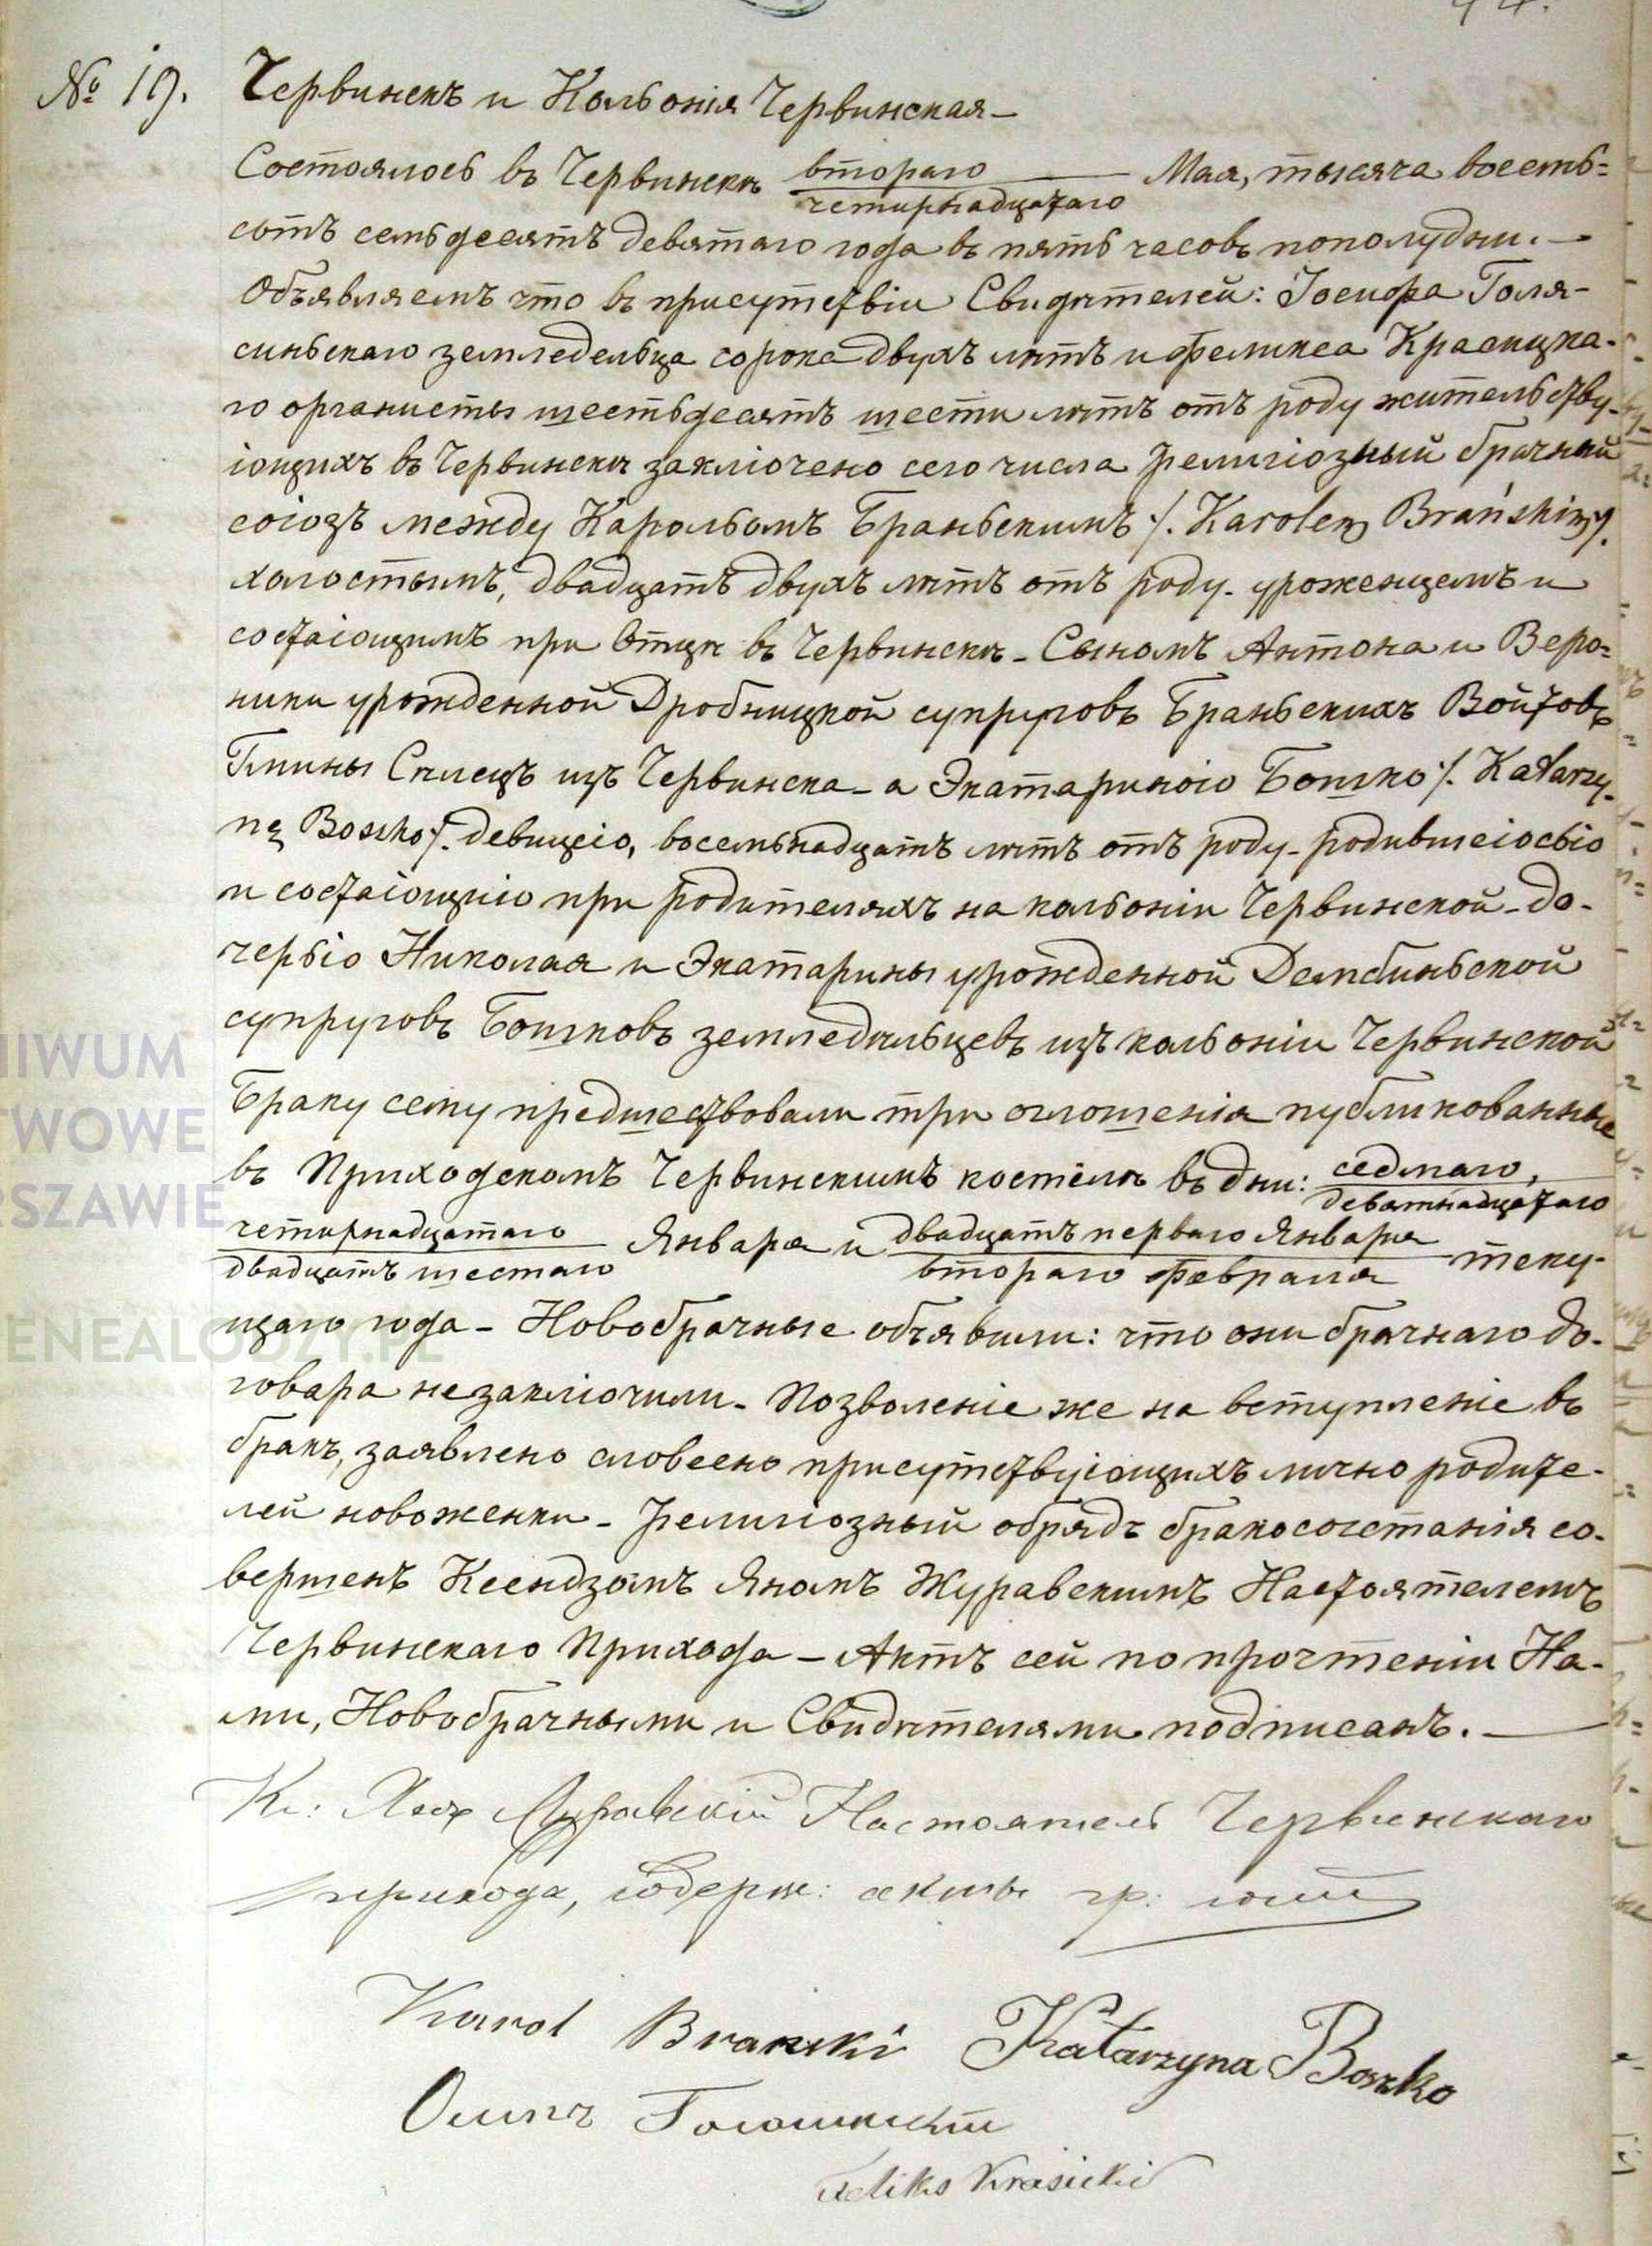 № 19.
Червинскъ и Кольонія Червинская —
Состоялось въ Червинскѣ втораго Мая, тысяча восемь=
четырнадцатаго
сотъ семьдесятъ девятаго года въ пять часовъ пополудни. —
Объявляемъ что въ присутствіи Свидѣтелей: Іосифа Голя-
синьскаго земледельца сорока двухъ лѣтъ и Феликса Красицка-
го органисты шестьдесятъ шести лѣтъ отъ роду жительству-
ющихъ въ Червинскѣ заключено сего числа религіозный брачный
союзъ между Карольомъ Браньскимъ /. Karolem Brańskim /.
холостымъ, двадцатъ двухъ лѣтъ отъ роду - уроженцемъ и
состающимъ при Отцѣ въ Червинскѣ - Сыномъ Антона и Веро=
ники урожденной Дробницкой супруговъ Браньскихъ Войтовъ
Гмины Сѣлецъ изъ Червинска - а Экатариною Бошко /. Katarzy-
ną Boszko /. девицею, восемьнадцатъ лѣтъ отъ роду - родившеюсью
и состающую при родителяхъ на кольоніи Червинской - до-
черью Николая и Экатарины урожденной Дембиньской
супруговъ Бошковъ земледѣльцевъ изъ кольоніи Червинской
Браку сему предшествовали три оглошенія публикованные
въ Приходскомъ Червинскимъ костёлѣ въ дни: седмаго,
девятнадцатаго
четырнадцатаго Января и двадцатъ перваго Января теку-
двадцатъ шестаго втораго Февраля
щаго года - Новобрачные объявили: что они брачнаго до-
говара незаключили - Позволеніе же на вступленіе въ
бракъ, заявлено словесно присутствующихъ лично родите-
лей новоженки - религіозный обрядъ бракосочетанія со-
вершенъ Ксендзомъ Яномъ Журавскимъ Настоятелемъ
Червинскаго Прихода — Актъ сей по прочтеніи На-
ми, Новобрачными и Свидѣтелями подписанъ. —
Кс: Янъ Журавскій Настоятель Червинскаго
прихода, содерж: акты гр: сост
Karol Branski Katarzyna Boszko
Feliks Krasicki
GENEALODZY.PL